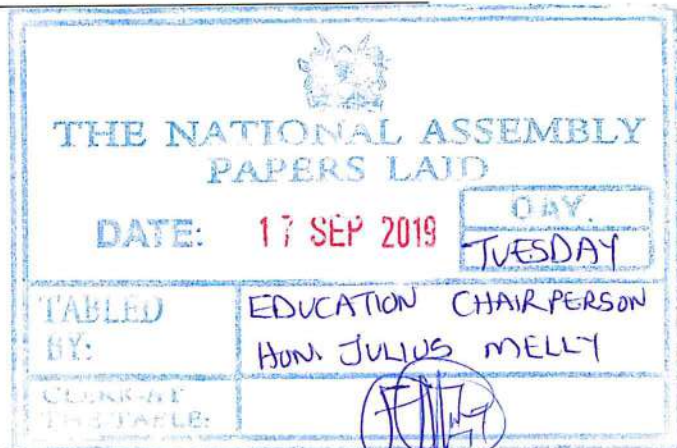 THE NATIONAL ASSEMBLY
PAPERS LAID
DATE: 17 SEP 2019
DAY.
TUESDAY
TABLED
BY:
EDUCATION CHAIRPERSON
HON. JULIUS MELLY
CLERK-AT
THE-TABLE: